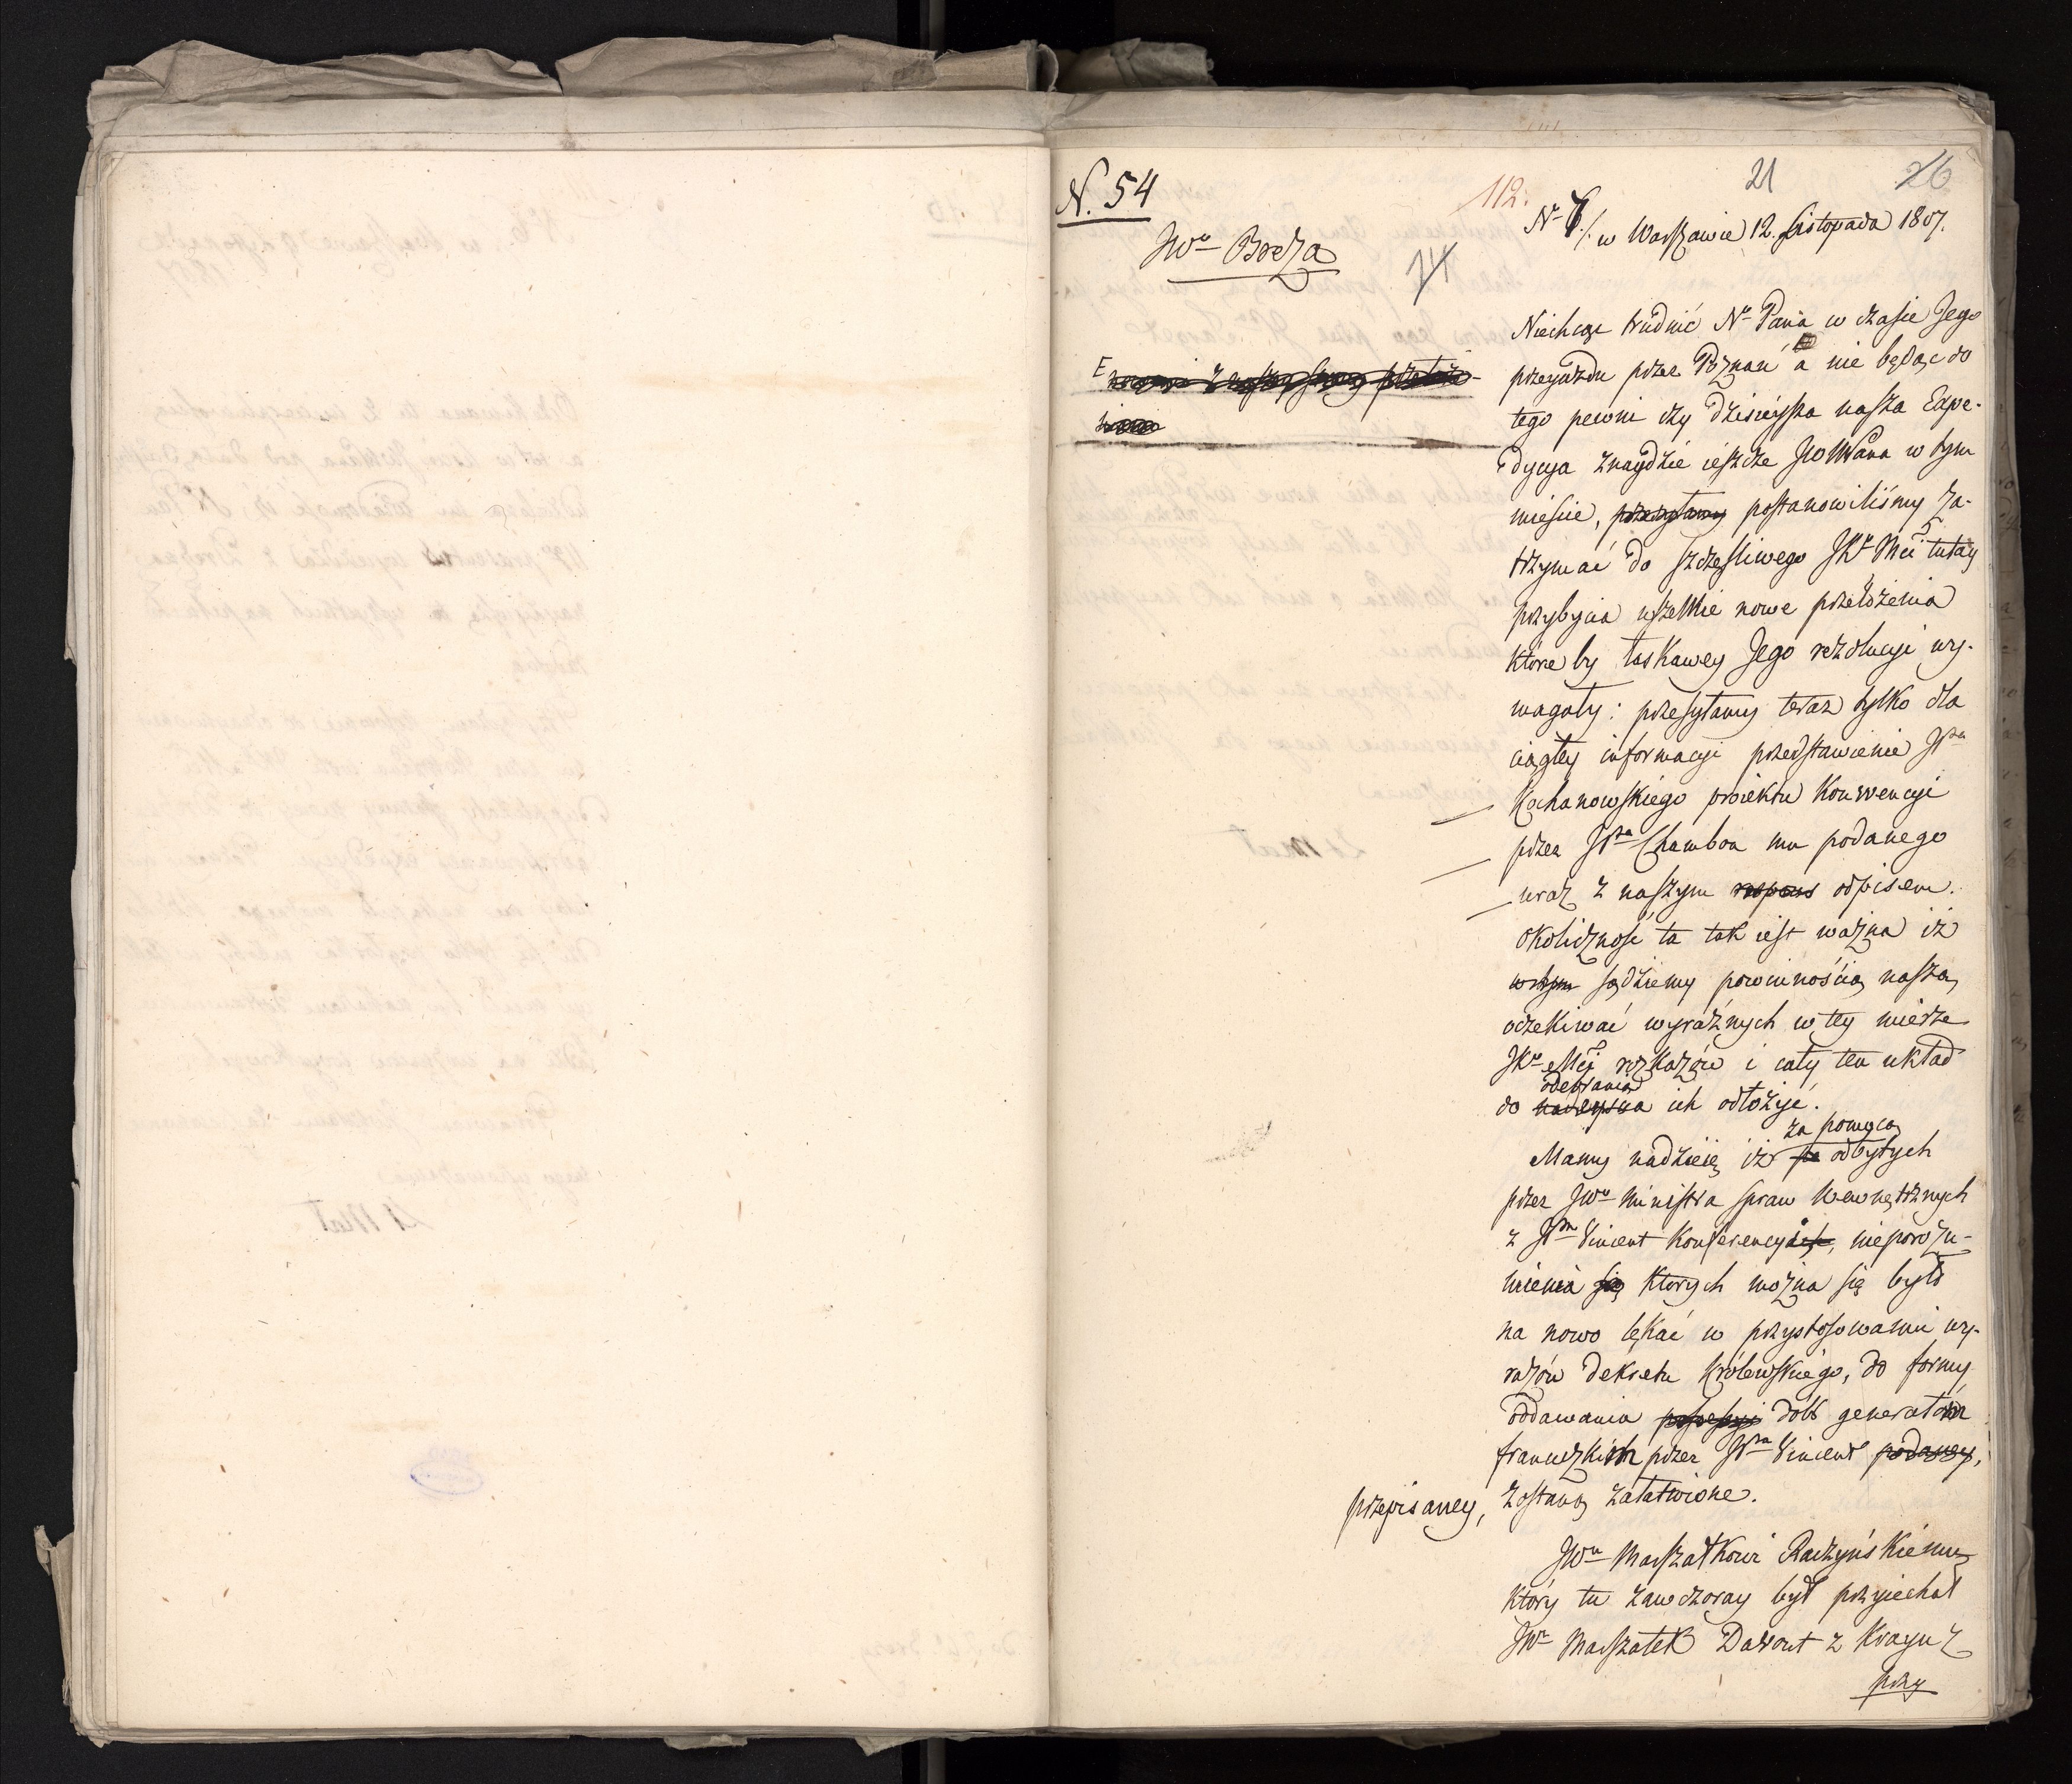 N. 54
112.
21
26
JWu Breza
74
Nr 7./. w Warszawie 12. Listopada 1807.
Niechcąc trudnić Nо Pana w czasie Jego
przeyazdu przez Poznań a nie będąc do
tego pewni czy dzisieyssza nasza Expe-
dycya znaydzie ieszcze JWWPana w tym
mieście, przesyłamy postanowiliśmy za-
trzymać do szczęśliwego JKr Mci tutay
przybycia wszelkie nowe przełożenia
które by łaskawey Jego rezolucyi wy-
magały: przesyłamy teraz tylko dla
ciągłey informacyi przedstawienie JPa
Kochanowskiego proiektu Konwencyi
przez JPa Chambon mu podanego
wraz z naszym respons odpisem.
Okoliczność ta tak iest ważna iż
w tym sądziemy powinnością naszą
oczekiwać wyraźnych w tey mierze
JKr Mci rozkazów i cały ten układ
odebrania
do nadeyścia ich odłożyć.
za pomocą
Mamy nadzieię iż po odbytych
przez JWo Ministra spraw Wewnętrznych
z JPm Vincent Konferencyach, nieporozu-
mienia się których można się było
na nowo lękać w przystosowaniu wy-
razów dekretu Królewskiego, do formy
oddawania possessyi dóbr generałom
francuzkim przez JPa Vincent podaney,
przepisaney, zostaną załatwione.
JWu Marszałkowi Raczyńskiemu
który tu zawczoray był przyiechał
JWn Marszałek Davout z Kraju
przy